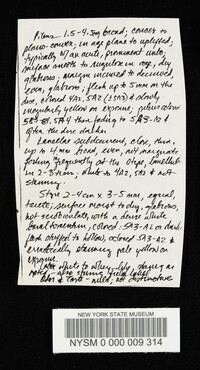 Pileus 1.5-4.5cm broad; convex to
plano-convex, in age plane to uplifted,
typically w/an acute, prominent umbo;
surface smooth to rugulose in age, dry
glabrous; margin incurved to decurved,
even, glabrous; flesh up to 5mm on the
disc, colored 4A2, 5A2 (5A3) & slowly
yellow on exposure;
5A4 then fading to 5A3-A2 &
often the disc darker.
Lamellae subdecurrent, close, thin,
up to 4mm broad, even, not marginate
forking frequently at the stipe, lamellulae
in 2-3 tiers; white to 4A2, 5A2 & not
staining.
Stipe 2-4cm x 3-5mm, equal,
terete; surface moist to dry, glabrous,
not sericulate, with a dense white
basal tomentum, colored: 5A3-A2 or darker
flesh stuffed to hollow, colored 5A3-A2 &
erratically staining pale yellow on
exposure.
Latex white to whey-like, staying as
noted
Odor & taste - mild, not distinctive
NEW YORK STATE MUSEUM
NYSM 0 000 009 314